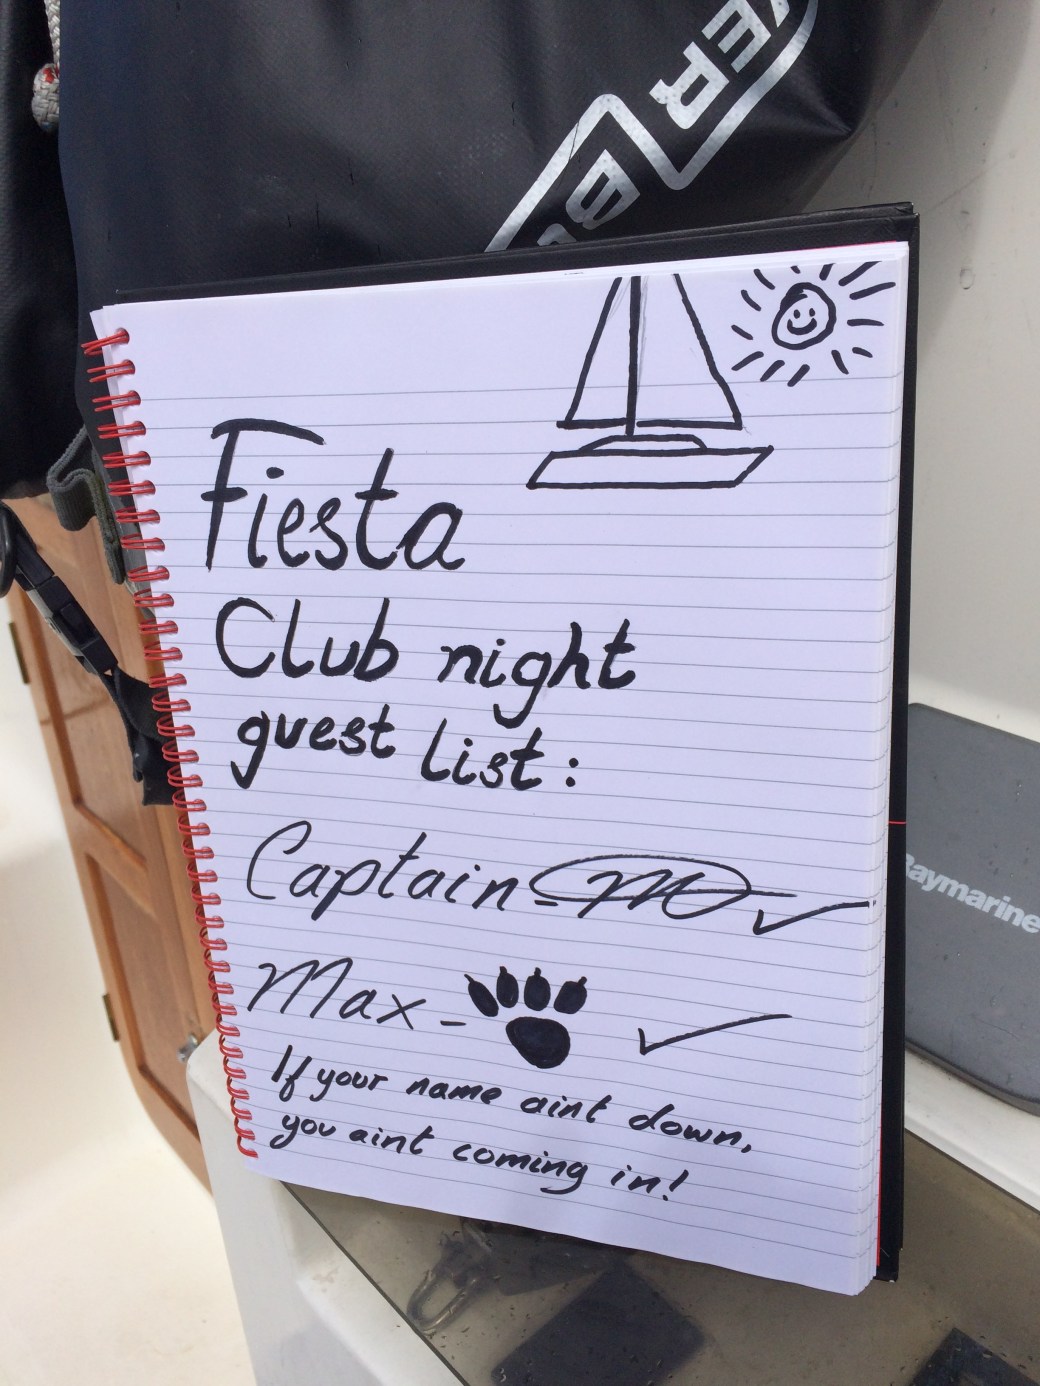 Fiesta
Club night
guest list:
Captain -
Max -
If your name aint down,
you aint coming in!
Raymarine